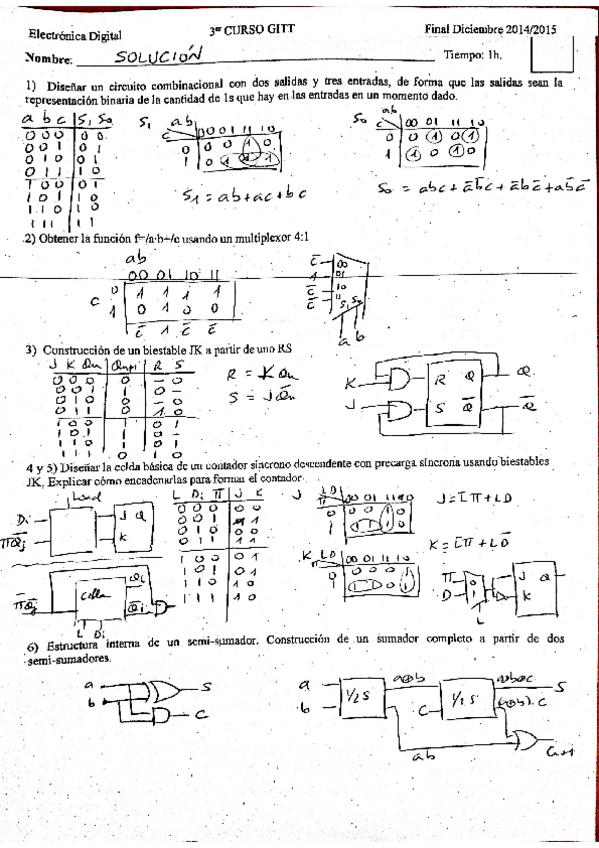 Electrónica Digital 3er CURSO GITT Final Diciembre 2014/2015
Nombre: SOLUCIÓN Tiempo: 1h.
1) Diseñar un circuito combinacional con dos salidas y tres entradas, de forma que las salidas sean la
representación binaria de la cantidad de 1s que hay en las entradas en un momento dado.
a b c S1 S0
0 0 0 0 0
0 0 1 0 1
0 1 0 0 1
0 1 1 1 0
1 0 0 0 1
1 0 1 1 0
1 1 0 1 0
1 1 1 1 1
S1 ab
c 00 01 11 10
0 0 0 1 0
1 0 1 1 1
S1 = ab + ac + bc
S0 ab
c 00 01 11 10
0 0 1 0 1
1 1 0 1 0
S0 = abc + a̅b̅c + a̅bc̅ + ab̅c̅
2) Obtener la función f=/a·b+/c usando un multiplexor 4:1
ab
00 01 10 11
c 0 1 1 1 1
1 0 1 0 0
c̅ 1 c̅ c̅
c̅ 00
1 01
c̅ 10
c̅ 11
S1 S0
a b
3) Construcción de un biestable JK a partir de uno RS
J K Qn Qn+1 R S
0 0 0 0 – 0
R = K Qn
S = J Q̅n
K R Q Q
J S Q̅ Q̅
4 y 5) Diseñar la celda básica de un contador síncrono descendente con precarga síncrona usando biestables
JK. Explicar cómo encadenarlas para formar el contador.
Load
Di J Q
K
L Di Π J K
0 0 0 0 0
0 0 1 1 1
0 1 0 0 0
0 1 1 1 1
1 0 0 0 1
1 0 1 0 1
1 1 0 1 0
1 1 1 1 0
J LD 00 01 11 10
J = L̅Π + LD
K LD 00 01 11 10
K = L̅Π + LD̅
Π
D
L
J Q
K
celda Qi
Q̅i
L Di
6) Estructura interna de un semi-sumador. Construcción de un sumador completo a partir de dos
semi-sumadores.
a S
b C
a ½ S a⊕b ½ S a⊕b⊕c S
b C (a⊕b)·c
ab